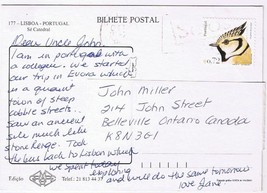 177 - LISBOA - PORTUGAL
Sé Catedral
BILHETE POSTAL
Dear Uncle John,
I am in portugal with
a collegue. We started
our trip in Evora which
is a quaint
town of steep
cobble streets.
Saw an ancient
site much like
stone henge. Took
the bus back to Lisbon where
we spent today
exploring and will do the same tomorrow
love Jane
John Miller
214 John Street
Belleville Ontario Canada
K8N3G1
Edição
Telef.: 21 813 44 37